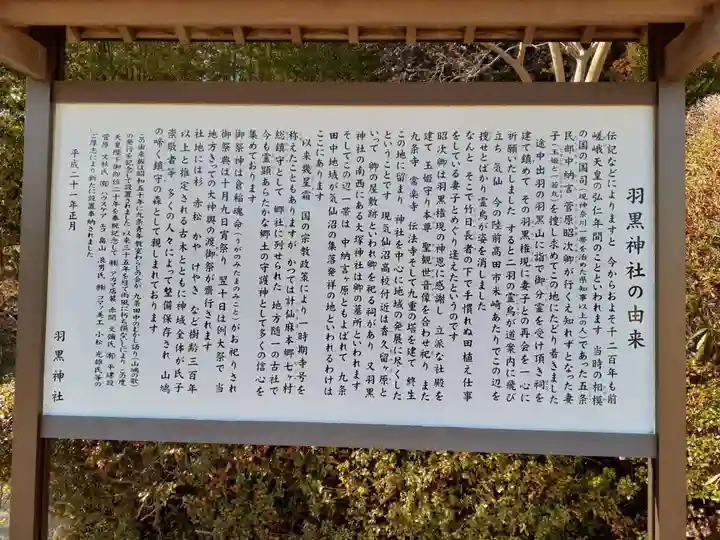 羽黒神社の由来
伝記などによりますと 今からおよそ千二百年も前
嵯峨天皇の弘仁年間のことといわれます 当時の相模
の国の国司(現神奈川一帯を治めた県知事以上の人)であった五条
民部中納言 菅原昭次卿が行くえ知れずとなった妻
子(玉姫と一若丸)を捜し求めてこの地にたどり着きました
途中出羽の羽黒山に詣で御分霊を受け頂き祠を
建て鎮めて その羽黒権現に妻子との再会を一心に
祈願いたしました すると一羽の霊鳥が道案内に飛び
立ち 気仙 今の陸前高田市米崎あたりでこの辺を
捜せとばかり霊鳥が姿を消しました
なんと そこで竹日長者の下で手慣れぬ田植え仕事
をしている妻子とめぐり逢えたというのです
昭次卿は羽黒権現の神恩に感謝し 立派な社殿を
建て 玉姫守り本尊 聖観世音像を合わせ祀り また
九条寺 常楽寺 伝法寺そして九重の塔を建て 終生
この地に留まり 神社を中心に地域の発展に尽くした
ということです 現気仙沼高校付近は香久留ヶ原と
いって 卿の屋敷跡といわれ卿を祀る祠があり 又羽黒
神社の南西にある大塚神社は卿の墓所といわれます
そしてこの辺一帯は 中納言ヶ原ともよばれて 九条
田中地域が気仙沼の集落発祥の地といわれるわけは
ここにあります
以来幾星霜 国の宗教政策により一時期寺号を
称えたこともありますが かつては計仙麻本郷七ヶ村
総鎮守として郷社に列せられた 地方随一の古社で
今も霊顕あらたかな郷土の守護神として多くの信心を
集めております
御祭神は倉稲魂命(うかのみたまのみこと)がお祀りされ
御祭典は十月九日宵祭り 翌十日は例大祭で 当
地方きっての大神輿の渡御祭が斎行されます
社地には杉 赤松 かや けやき など樹齢三百年
以上と推定される古木とともに神域全体が氏子
崇敬者等 多くの人々によって整備保存され 山鳩
の啼く鎮守の森として親しまれております
この由来板は昭和五十年に九条青年教室わらじの会が 九条田中のむかし語り(山鳩の歌)
の発行を記念して設置されました 以来三十五年を経て雨風に朽ち損なじしにより この度
天皇陛下御即位二十年を奉祝記念して
平成二十一年正月
羽黒神社